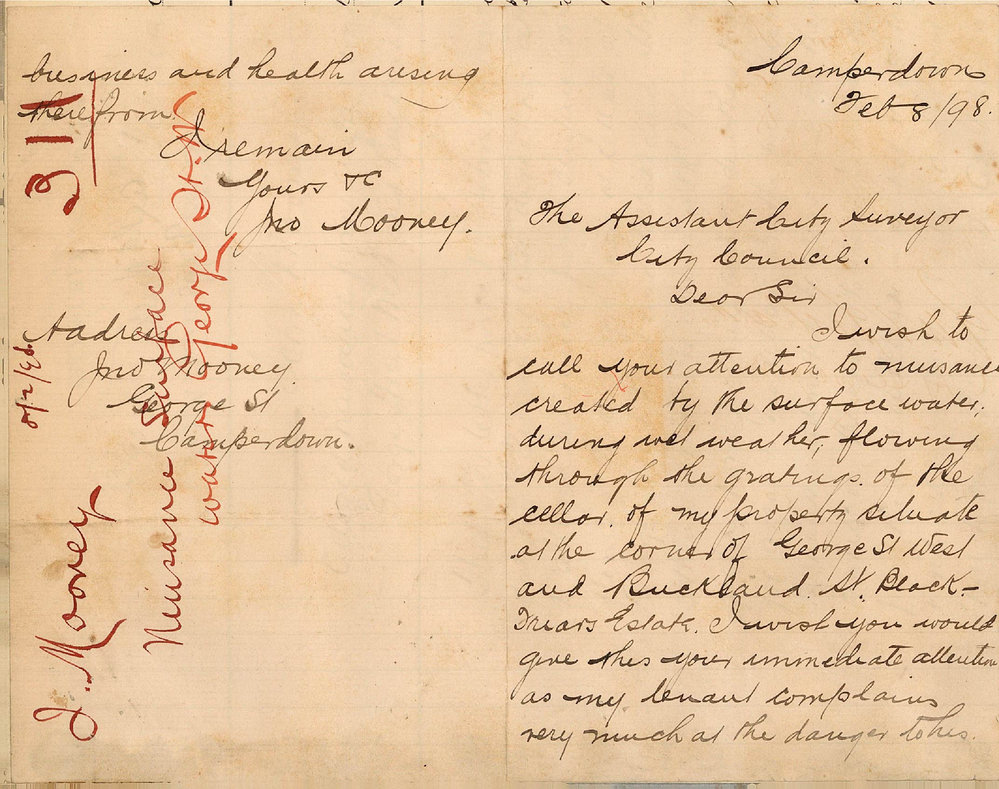 Camperdown
Feb 8/98.
The Assistant City Surveyor
City Council.
Dear Sir
I wish to
call your attention to nuisance
created by the surface water,
during wet weather, flowing
through the gratings of the
cellar of my property situate
at the corner of George St West
and Buckland St. Black-
Friars Estate. I wish you would
give this your immediate attention
as my tenant complains
very much at the danger to his
business and health arising
therefrom
I remain
Yours &c
Jno Mooney.
Address
Jno Mooney
George St
Camperdown.
311
J. Mooney
8/2/98
Nuisance Surface
water George St. W